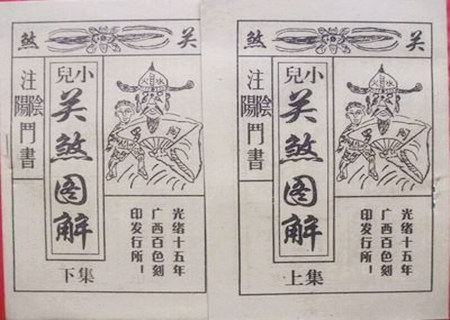 关煞
小兒
关煞图解
上集
注陰陽鬥書
光緒十五年
广西百色刻
印发行所！
关煞
小兒
关煞图解
下集
注陰陽鬥書
光緒十五年
广西百色刻
印发行所！